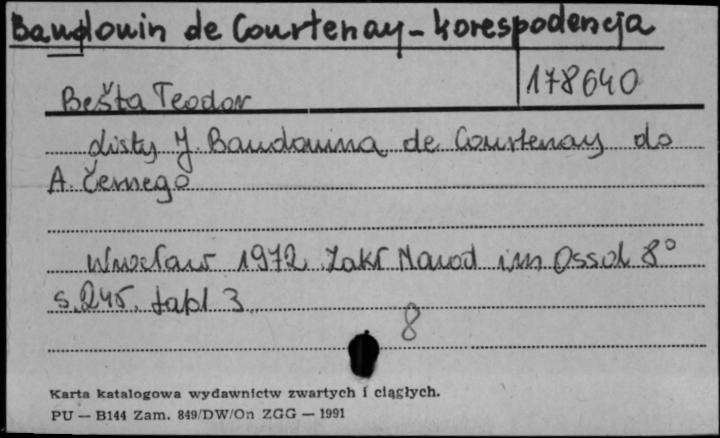 Baudouin de Courtenay - korespodencja
178640
Bešta Teodor
Listy J. Baudouina de Courtenay do
A. Černego
Wrocław 1972 Zakł Narod im Ossol 8°
s. 245. tabl 3
8
Karta katalogowa wydawnictw zwartych i ciągłych.
PU — B144 Zam. 849/DW/On ZGG — 1991